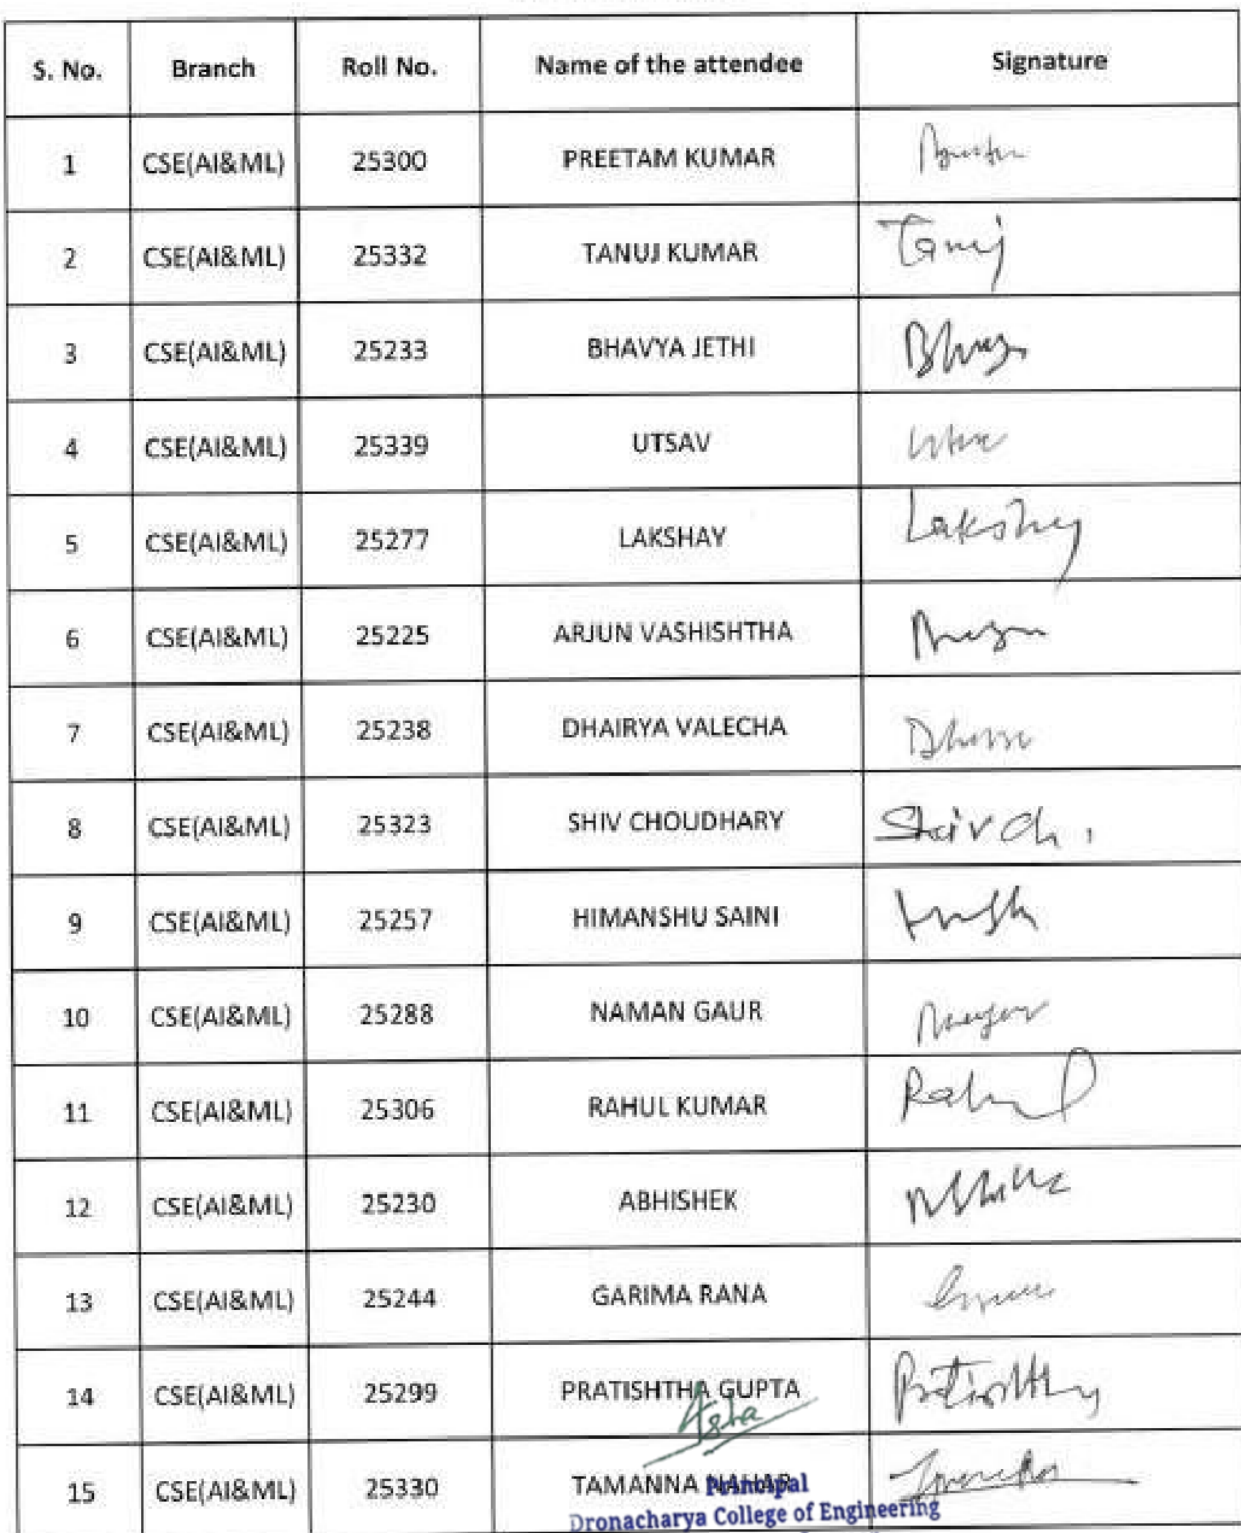 S. No. Branch Roll No. Name of the attendee Signature
1 CSE(AI&ML) 25300 PREETAM KUMAR
2 CSE(AI&ML) 25332 TANUJ KUMAR Tanuj
3 CSE(AI&ML) 25233 BHAVYA JETHI
4 CSE(AI&ML) 25339 UTSAV
5 CSE(AI&ML) 25277 LAKSHAY Lakshay
6 CSE(AI&ML) 25225 ARJUN VASHISHTHA
7 CSE(AI&ML) 25238 DHAIRYA VALECHA
8 CSE(AI&ML) 25323 SHIV CHOUDHARY Shiv Ch.
9 CSE(AI&ML) 25257 HIMANSHU SAINI
10 CSE(AI&ML) 25288 NAMAN GAUR
11 CSE(AI&ML) 25306 RAHUL KUMAR Rahul
12 CSE(AI&ML) 25230 ABHISHEK
13 CSE(AI&ML) 25244 GARIMA RANA
14 CSE(AI&ML) 25299 PRATISHTHA GUPTA Pratishtha
15 CSE(AI&ML) 25330 TAMANNA NAHAR
Principal
Dronacharya College of Engineering